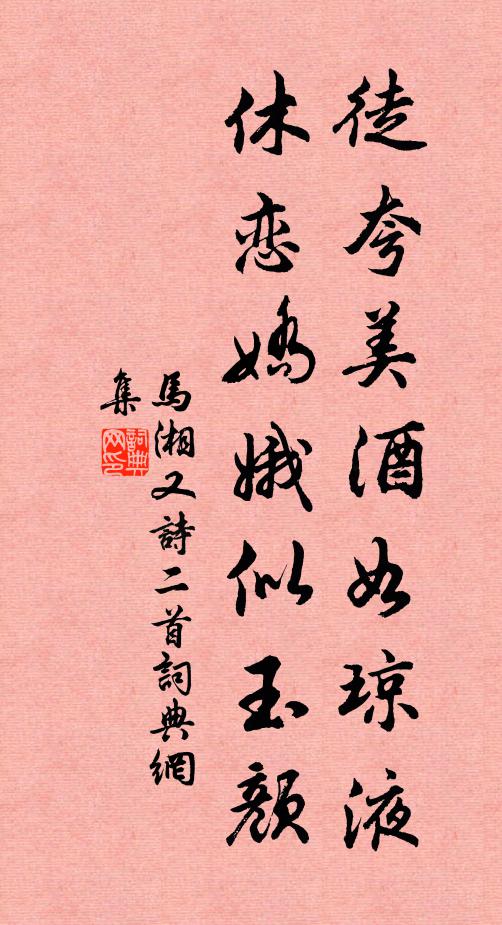 徒夸美酒如琼液
休恋嬌娥似玉颜
馬湘又詩二首詞典網
集
詞典網印